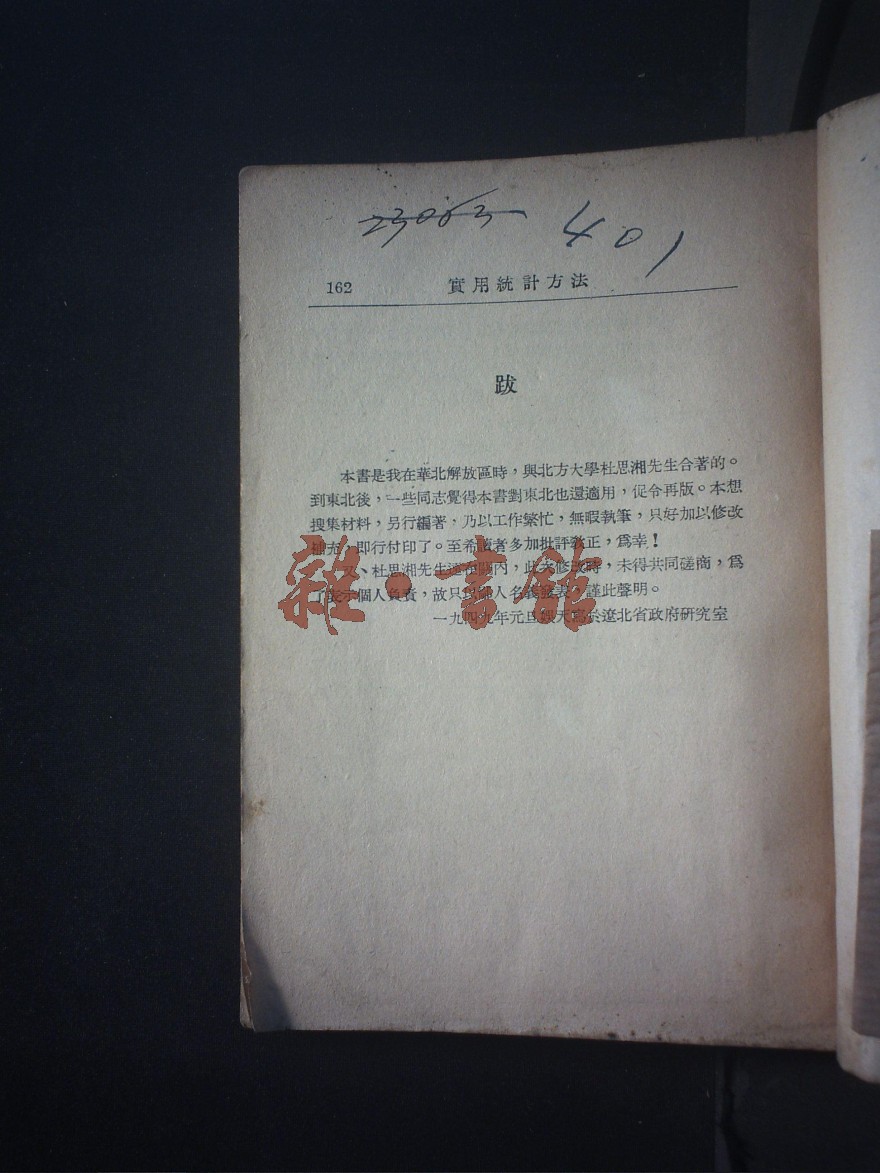 23063
401
162 實用統計方法
跋
本書是我在華北解放區時，與北方大學杜思湘先生合著的。
到東北後，一些同志覺得本書對東北也還適用，促令再版。本想
搜集材料，另行編著，乃以工作繁忙，無暇執筆，只好加以修改
補充，即行付印了。至希讀者多加批評教正，爲幸！
又、杜思湘先生遠在關內，此次修改時，未得共同磋商，爲
了表示個人負責，故只以個人名義發表，謹此聲明。
一九四九年元旦 天 於遼北省政府研究室
雜·書館